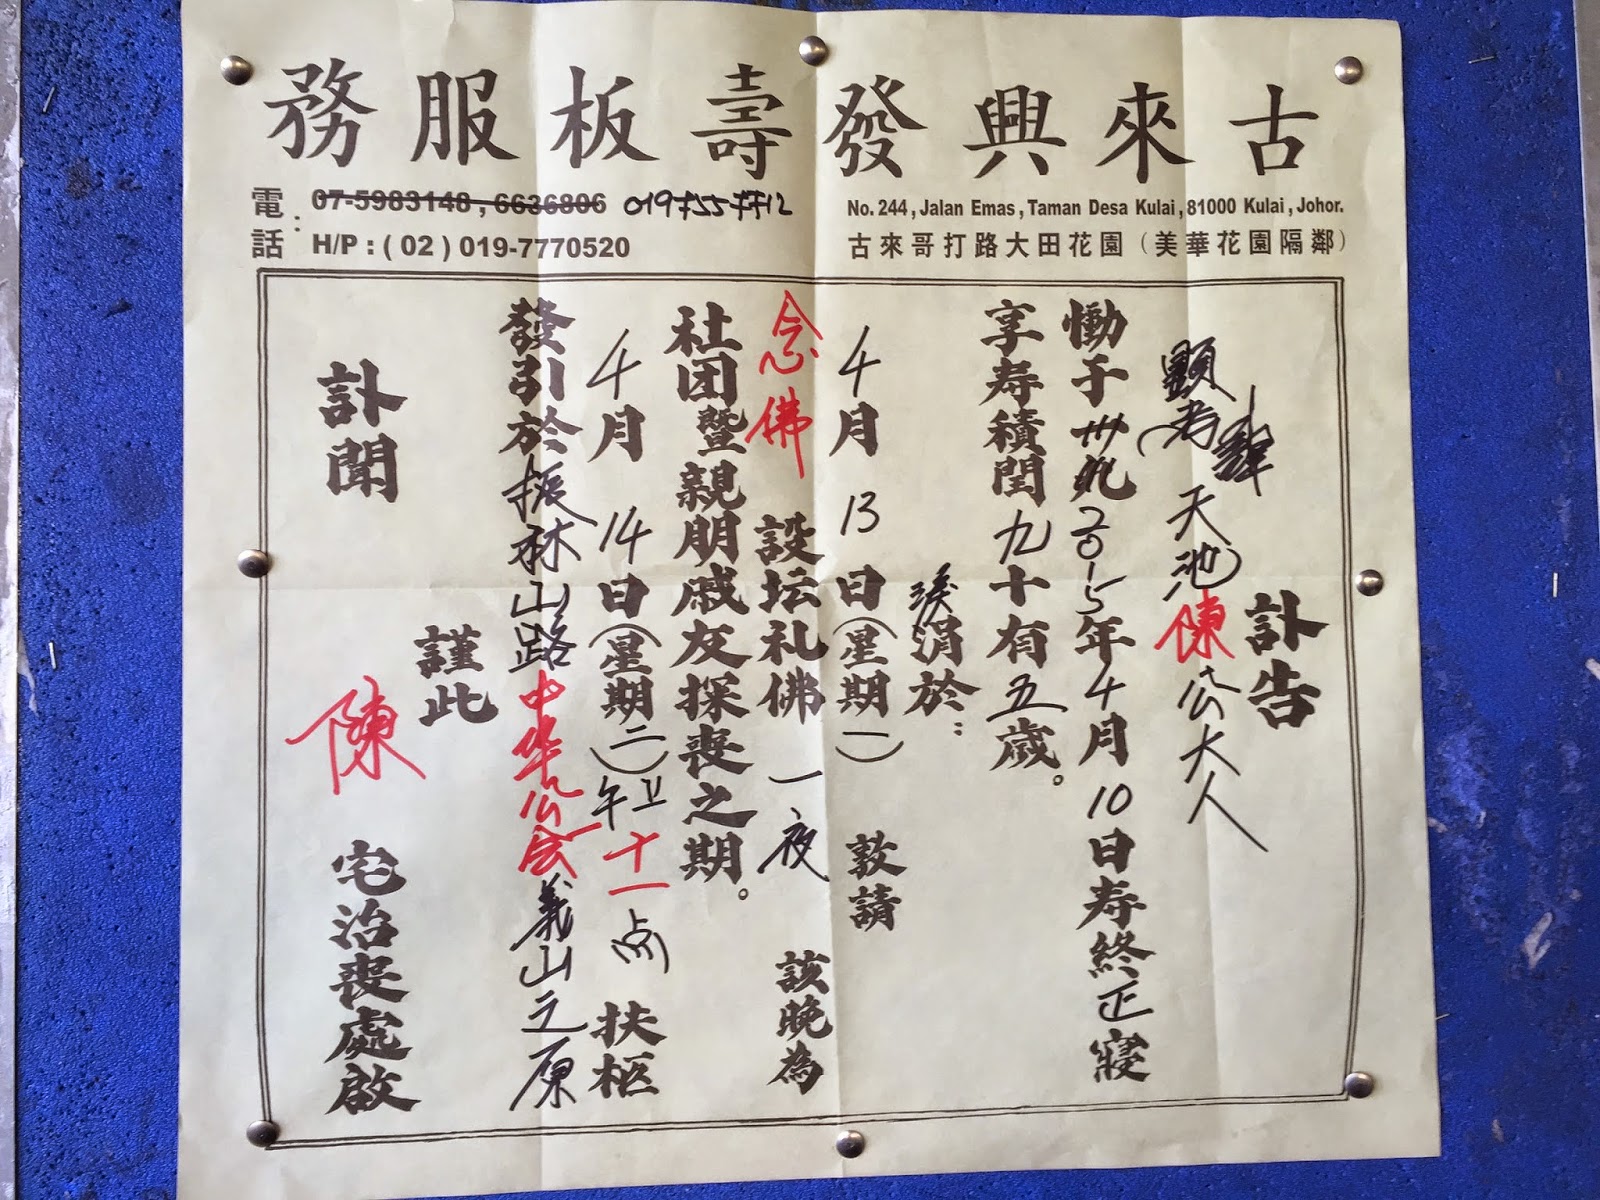 古來興發壽板服務
電話: 07-5983148 , 6636806 019755 7712
H/P : ( 02 ) 019-7770520
No. 244 , Jalan Emas , Taman Desa Kulai , 81000 Kulai , Johor.
古來哥打路大田花園（美華花園隔鄰）
訃告
顯考 天池陳公大人
慟于 2015年4月10日寿終正寢
享寿積閏九十有五歳。
淚涓於：
4月13日（星期一）敦請
念佛 設坛礼佛 一夜 該晚為
社团暨親朋戚友探喪之期。
4月14日（星期二）上午十一点 扶柩
發引於振林山路中华公会義山之原
謹此
訃聞
陳 宅治喪處啟